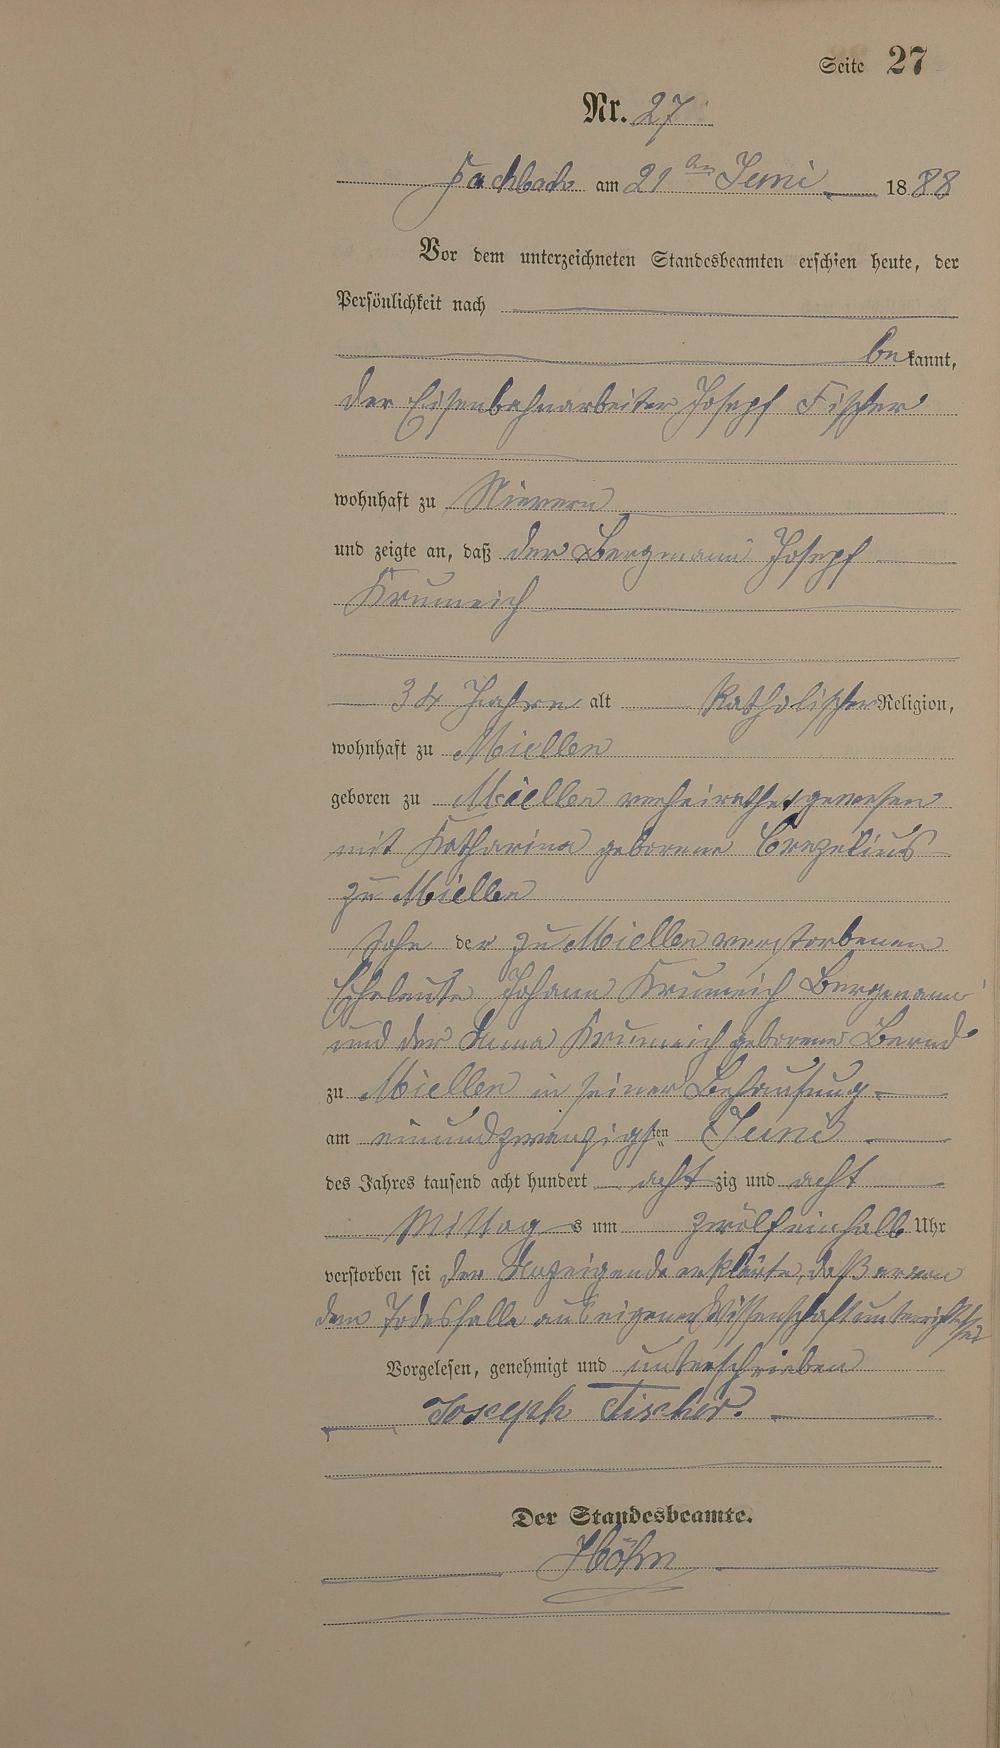 Seite 27
Nr. 27
Fachbach am 21ten Juni 1888
Vor dem unterzeichneten Standesbeamten erschien heute, der
Persönlichkeit nach
bekannt,
der Eisenbahnarbeiter Joseph Fischer
wohnhaft zu Nievern
und zeigte an, daß der Bergmann Joseph
Krumeich
34 Jahre alt katholischer Religion,
wohnhaft zu Miellen
geboren zu Miellen verheirathet gewesen
mit Katharina geborene Crezelius
zu Miellen
Sohn der zu Miellen verstorbenen
Eheleute Johann Krumeich Bergmann
und der Anna Krumeich geborene Bernd
zu Miellen in seiner Behausung
am einundzwanzigsten Juni
des Jahres tausend acht hundert achtzig und acht
Mittags um zwölfeinhalb Uhr
verstorben sei der Anzeigende erklärte, daß er von
dem Todesfalle aus eigener Wissenschaft unterrichtet sei
Vorgelesen, genehmigt und unterschrieben
Joseph Fischer.
Der Standesbeamte.
Höhn